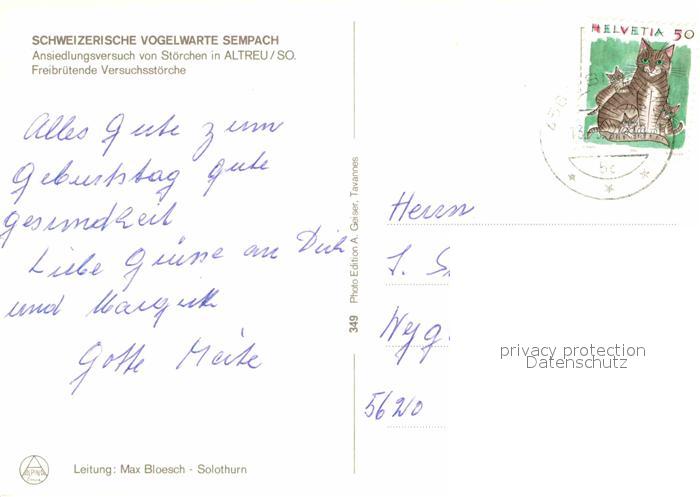 SCHWEIZERISCHE VOGELWARTE SEMPACH
Ansiedlungsversuch von Störchen in ALTREU/SO.
Freibrütende Versuchsstörche
HELVETIA 50
Alles Gute zum
Geburtstag gute
gesundheit
Liebe Grüsse an Dich
und Margrith
Gotte Meite
349 Photo Edition A. Geiser, Tavannes
Herrn
J. S
Wyg
5620
privacy protection
Datenschutz
Leitung: Max Bloesch - Solothurn